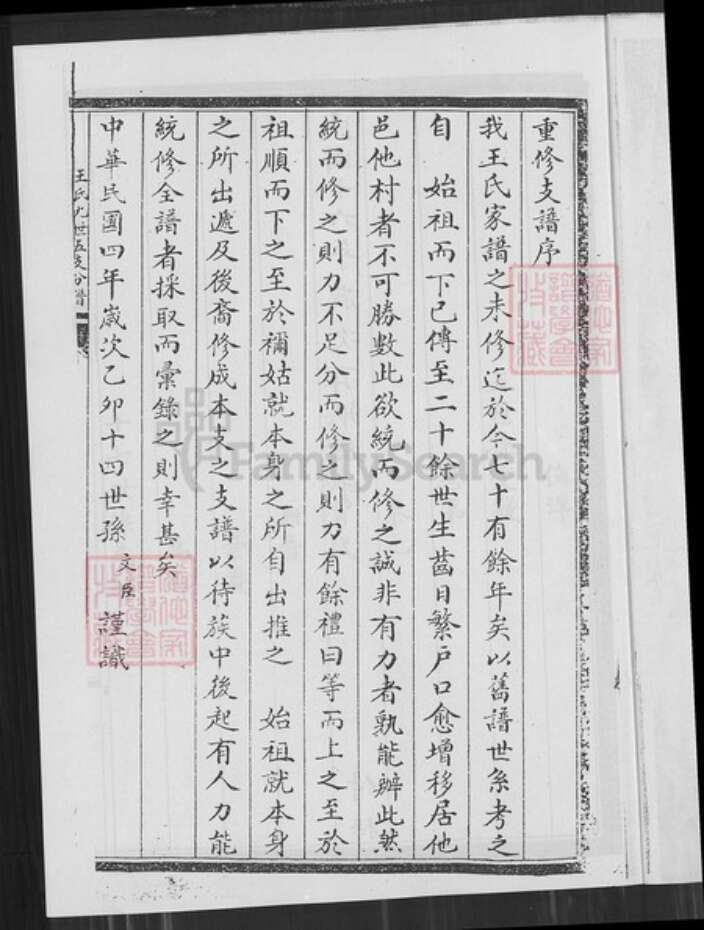 重修支譜序
我王氏家譜之未修迄於今七十有餘年矣以舊譜世系考之
自　始祖而下已傳至二十餘世生齒日繁戶口愈增移居他
邑他村者不可勝數此欲統而修之誠非有力者孰能辦此然
統而修之則力不足分而修之則力有餘禮曰等而上之至於
祖順而下之至於禰姑就本身之所自出推之　始祖就本身
之所出遞及後裔修成本支之支譜以待族中後起有人力能
統修全譜者採取而彙錄之則幸甚矣
中華民國四年歲次乙卯十四世孫　文臣　謹識
王氏九世五支分譜
FamilySearch